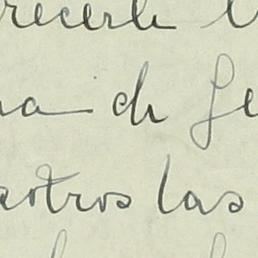 recerle l
na de Ge
astros las